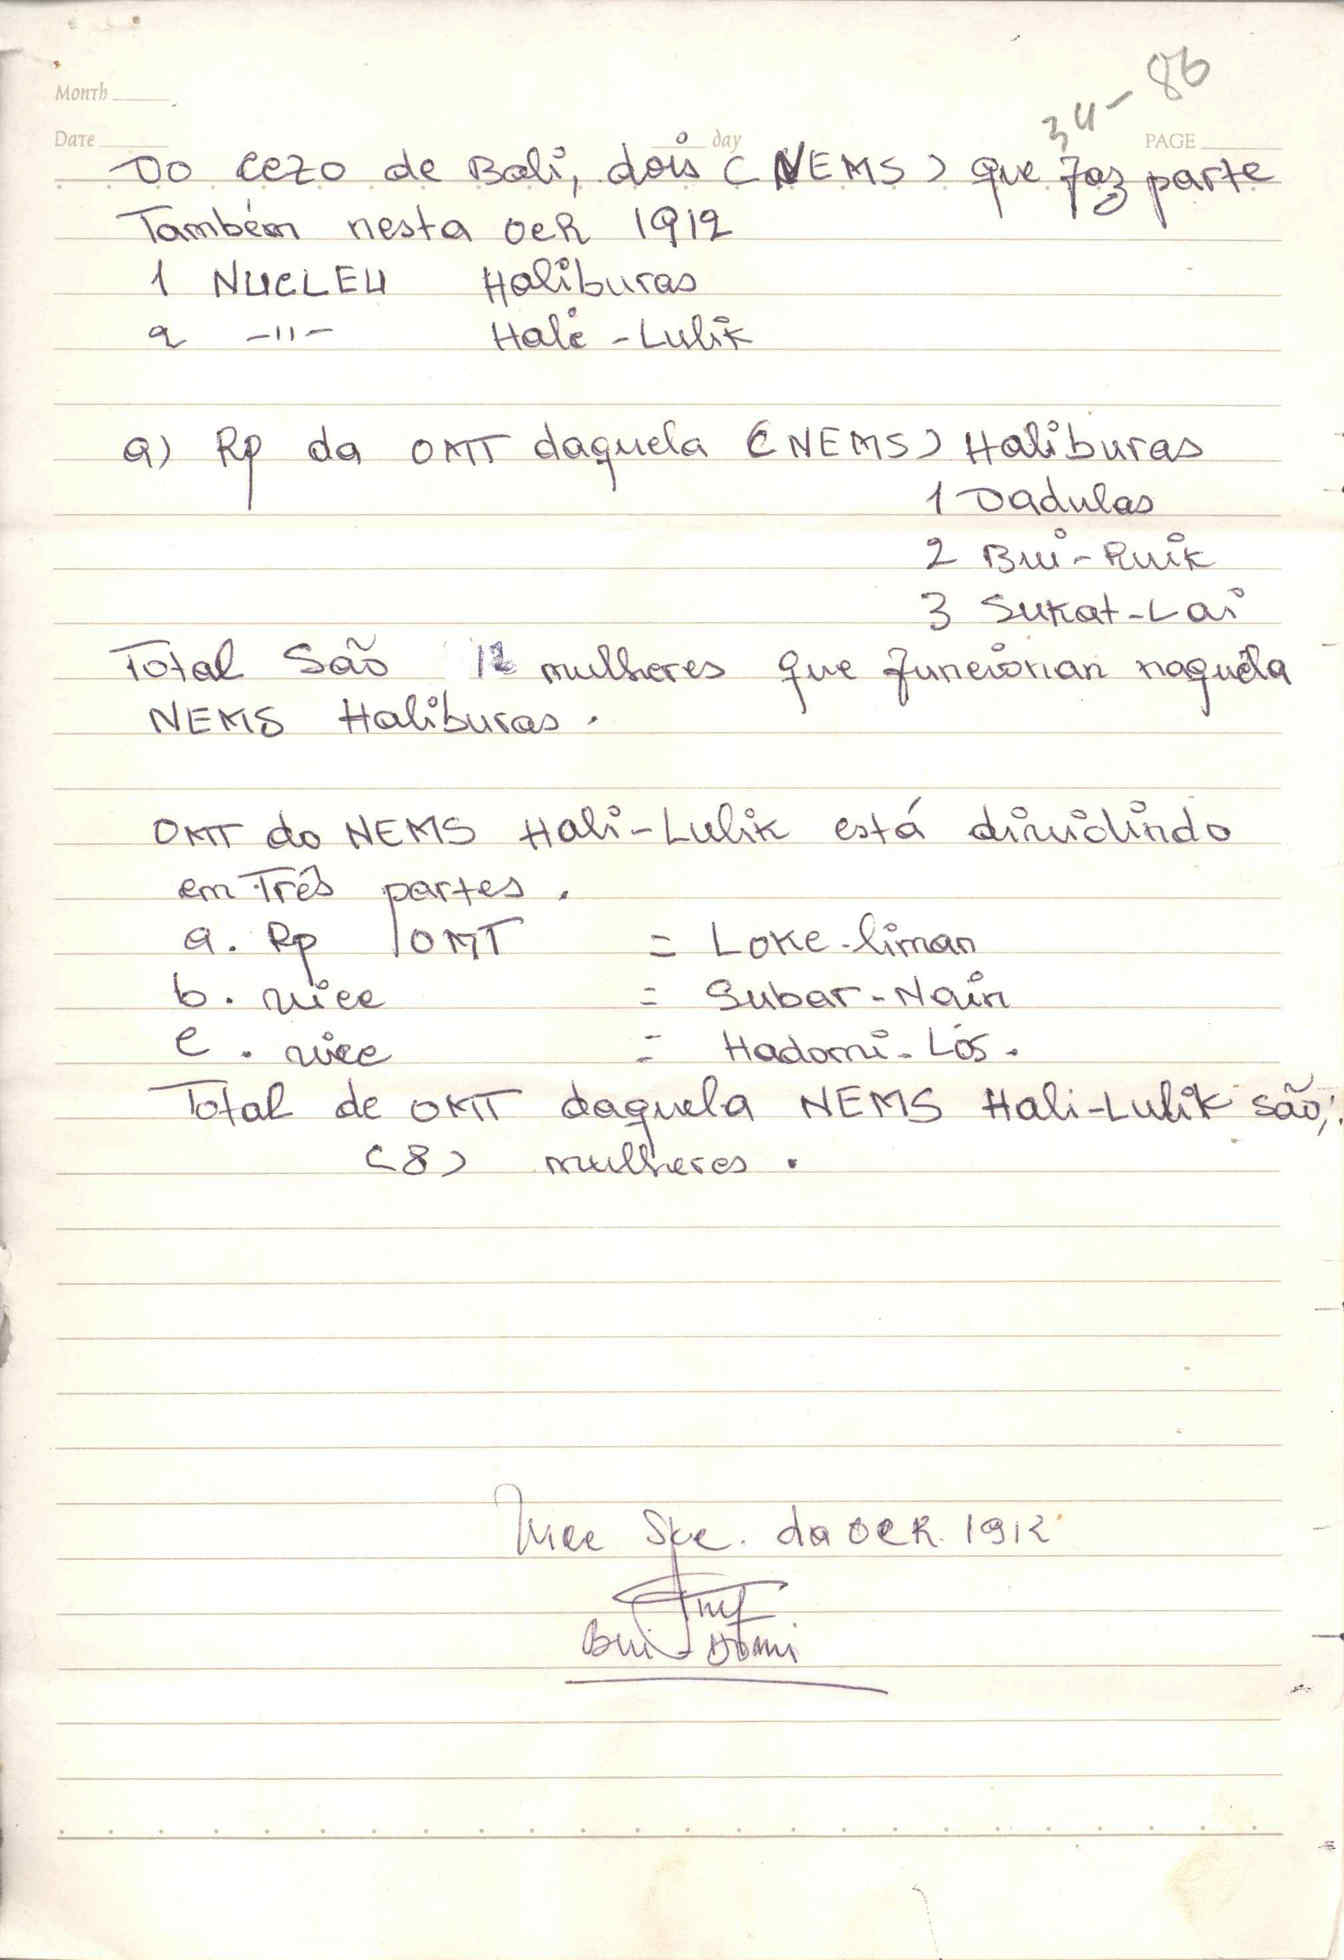 Month
34-86
Date day PAGE
Do cezo de Bali, dois (NEMS) que faz parte
Também nesta OCR 1912
1 NUCLEU Haliburas
2 -"- Hali-Lulik
a) Rp da OMT daquela (NEMS) Haliburas
1 Dadulas
2 Bui-Ruik
3 Sukat-Lai
Total São 12 mulheres que funcionan naquéla
NEMS Haliburas.
OMT do NEMS Hali-Lulik está dividindo
em Três partes.
a. Rp OMT = Loke-liman
b. vice = Subar-Nain
c. vice = Hadomi-Lós.
Total de OMT daquela NEMS Hali-Lulik são,:
(8) mulheres.
Vice Sec. da OCR. 1912
Bui-